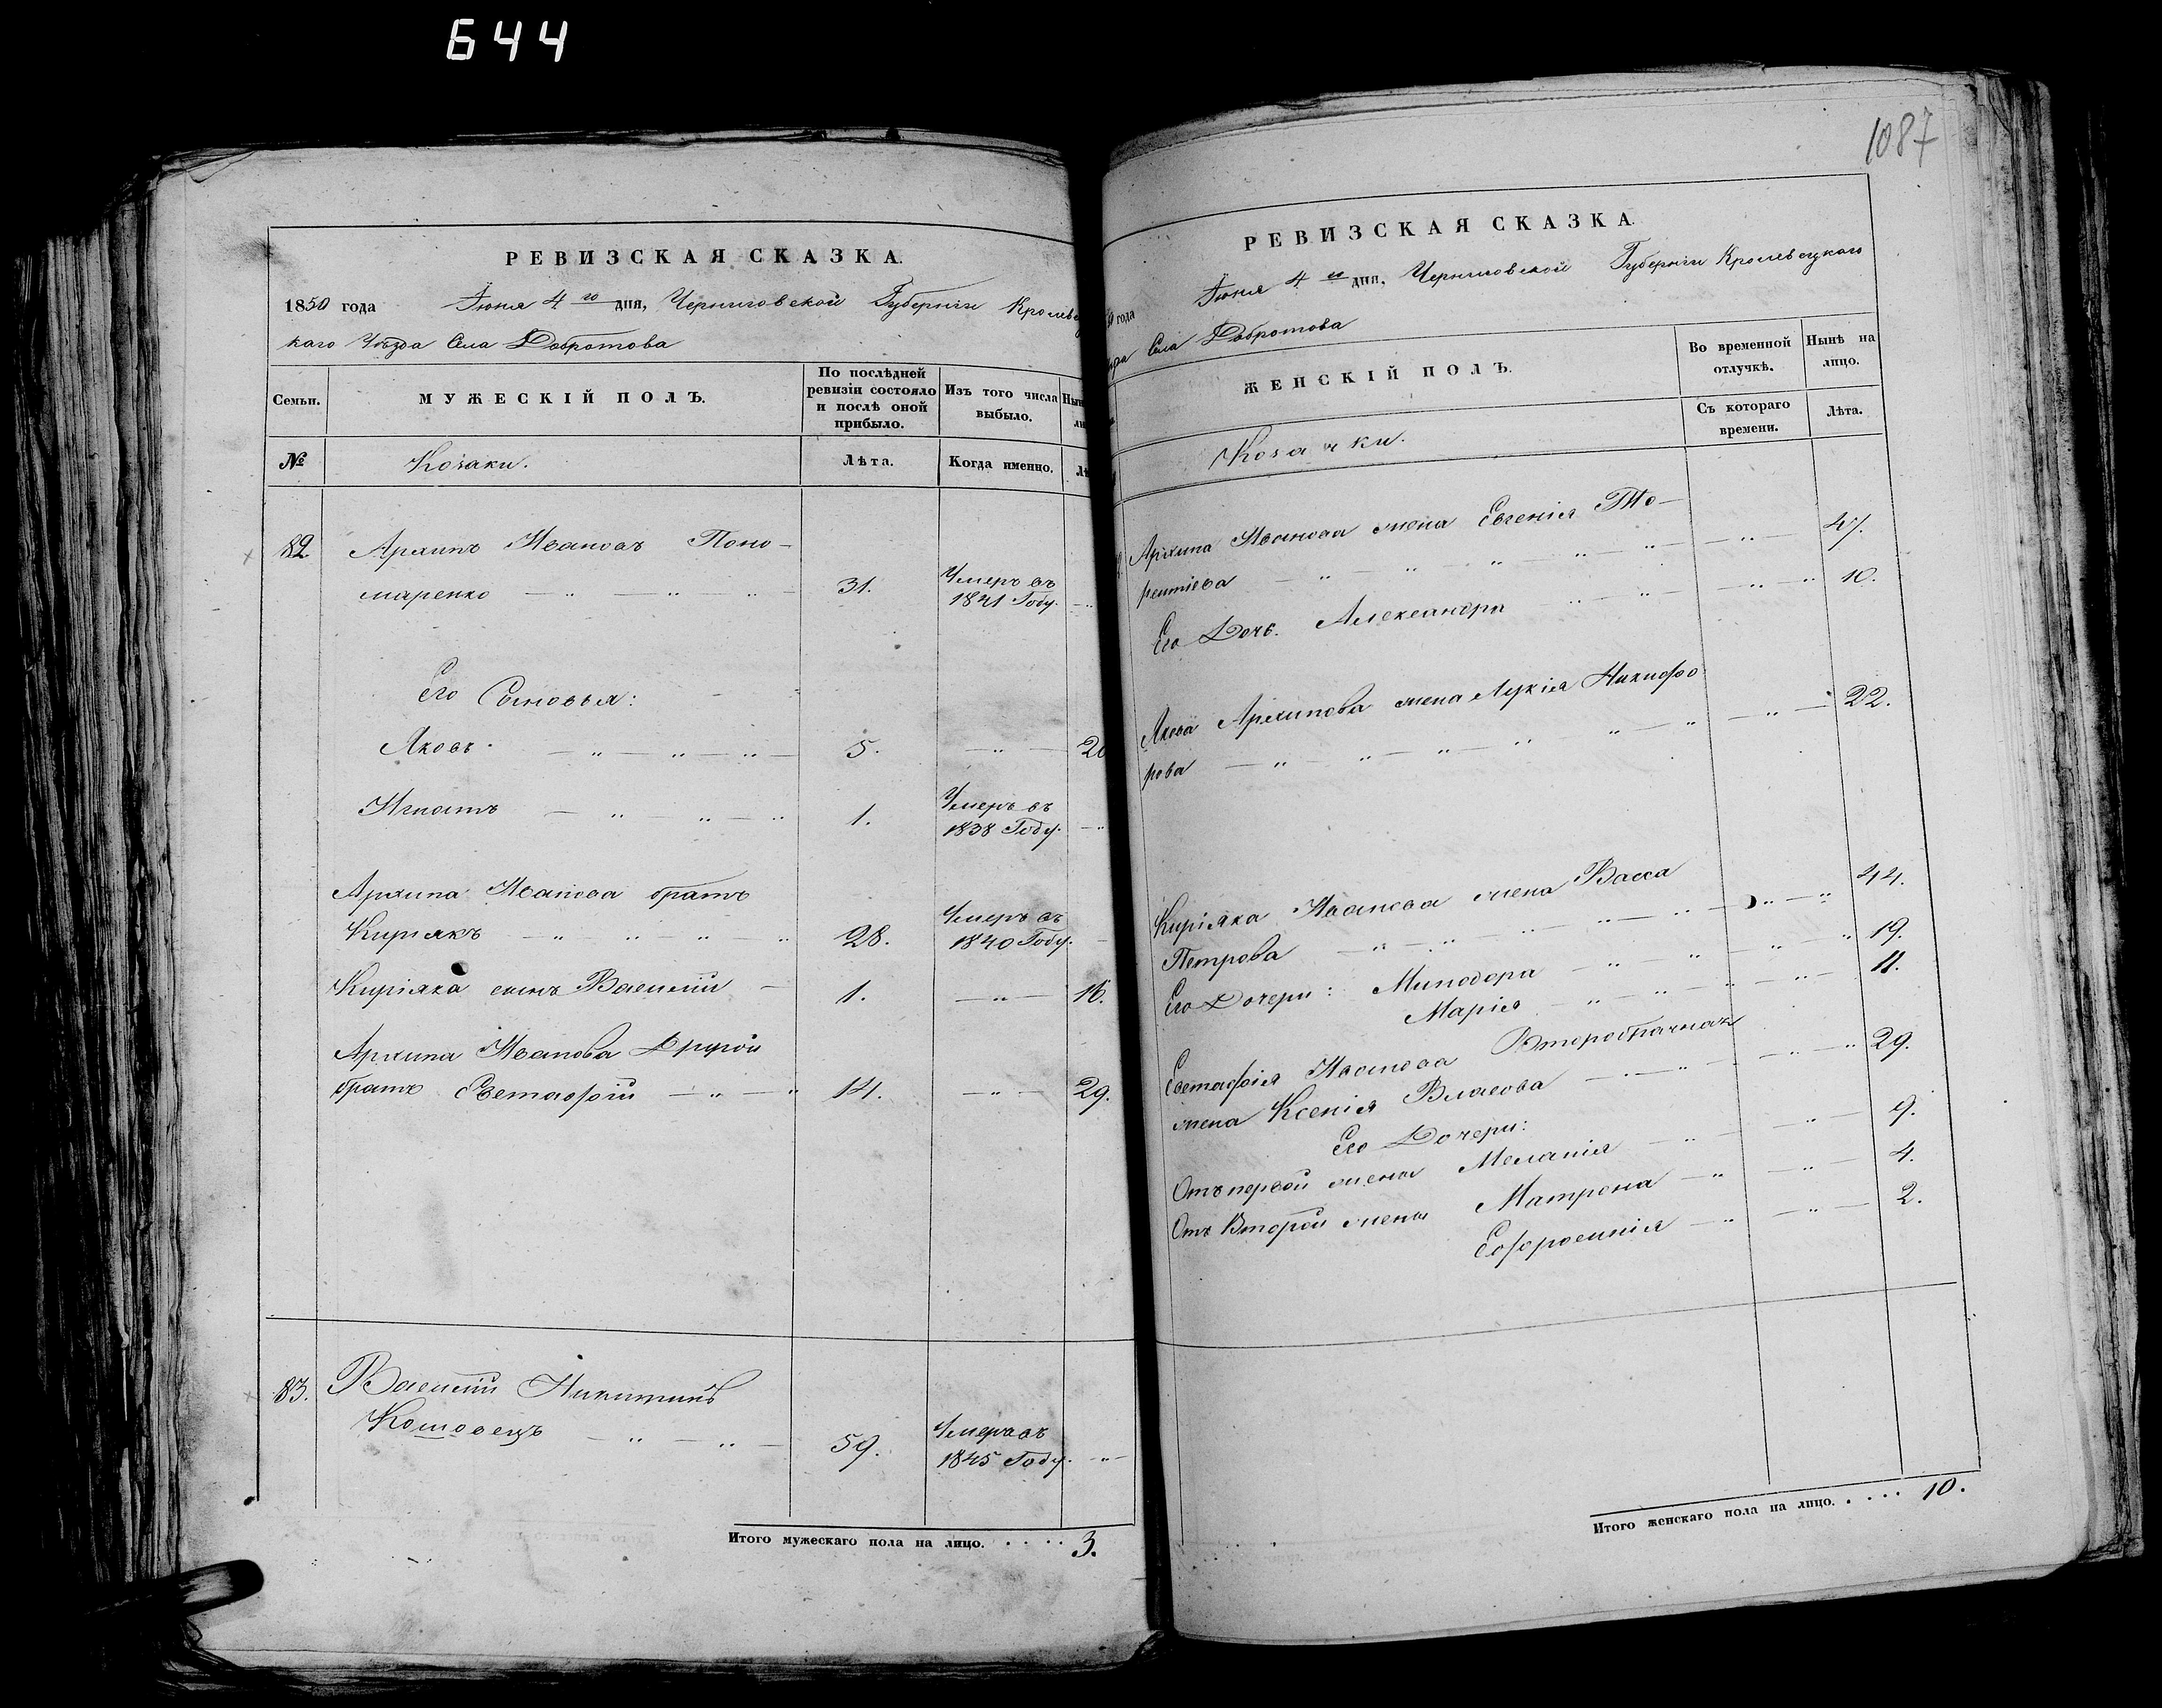 644
РЕВИЗСКАЯ СКАЗКА.
1850 года Іюня 4го дня, Черниговской Губерніи Кролевец
каго Уѣзда Села Добротова
Семьи.
МУЖЕСКІЙ ПОЛЪ.
По послѣдней
ревизіи состояло
и послѣ оной
прибыло.
Изъ того числа
выбыло.
№
Козаки.
Лѣта.
Когда именно.
82. Архипъ Ивановъ Поно-
маренко — „ — „ „ — 31. Умеръ въ
1841 Году. — „
Его Сыновья:
Яковъ — „ — „ — „ — 5. — „ — 20
Игнатъ — „ — „ — „ 1. Умеръ въ
1838 Году. — „
Архипа Иванова братъ
Киріякъ — „ „ „ „ 28. Умеръ въ
1840 Году.
Киріяка сынъ Василій — 1. — „ — 16.
Архипа Иванова Другой
братъ Евстафій — „ — „ 14. — „ — 29.
83. Василій Никитинъ
Кошовецъ — „ — „ — 59. Умеръ въ
1845 Году. — „ —
Итого мужескаго пола на лицо. . . . . 3.
1087
РЕВИЗСКАЯ СКАЗКА.
года Іюня 4го дня, Черниговской Губерніи Кролевецкаго
Села Добротова
ЖЕНСКІЙ ПОЛЪ.
Во временной
отлучкѣ.
Нынѣ на
лицо.
Съ котораго
времени.
Лѣта.
Козачки.
Архипа Иванова жена Евгенія Те-
рентіева — „ — „ — „ — „ — „ — „ — 47.
Его Дочь. Александра „ — „ — „ — „ 10.
Якова Архипова жена Лукія Никифо
рова — „ — „ — „ — „ „ — „ — „ — 22.
Киріяка Иванова жена Васса
Петрова — „ — „ — „ — „ — „ — „ — „ 44.
Его Дочери: Минодора — „ „ — „ — „ 19.
Марія — „ — „ — „ — „ — 11.
Евстафія Иванова Второбрачная
жена Ксенія Власова — „ — „ — „ — „ 29.
Его Дочери:
Отъ первой жены Меланія — „ — „ — 9.
Отъ Второй жены Матрона — „ — „ — 4.
Ефросинія — „ — „ — 2.
Итого женскаго пола на лицо. . . . . 10.